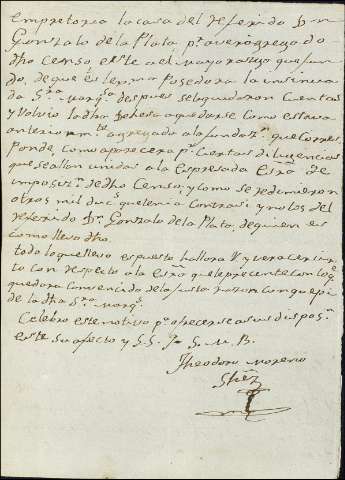 Empretoria la casa del referido Dn
Gonzalo de la Plata pr aver agregado
dho Censo, este al Mayorazgo que fun
do, de que es lexma Poseedora la insinua
da Sra Marqsa despues se loquedaron Cuentas
y Volvio la dha Dehesa a quedarse como estava
anteriormte agregado a la fundazn que Corres
ponde, como aparecera pr Ciertas diligencias
que se allan unidas a la Espresada Essra de
imposizn de dho Censo, y como se redimieron
otros mil ducs que tenia Contra si y no los del
referido Dn Gonzalo de la Plata, de quien es
Como llevo dho.
todo lo que llevo espuesto hallara V. y vera cier
to con respecto a la Essra que le presente con lo qe
quedara Convencido de la justa razon con que pi
de la dha Sra Marqs
Celebro este motivo pa ofrecerse a sus disposs
este su afecto y S. S. Q. S. M. B.
Theodoro Moreno